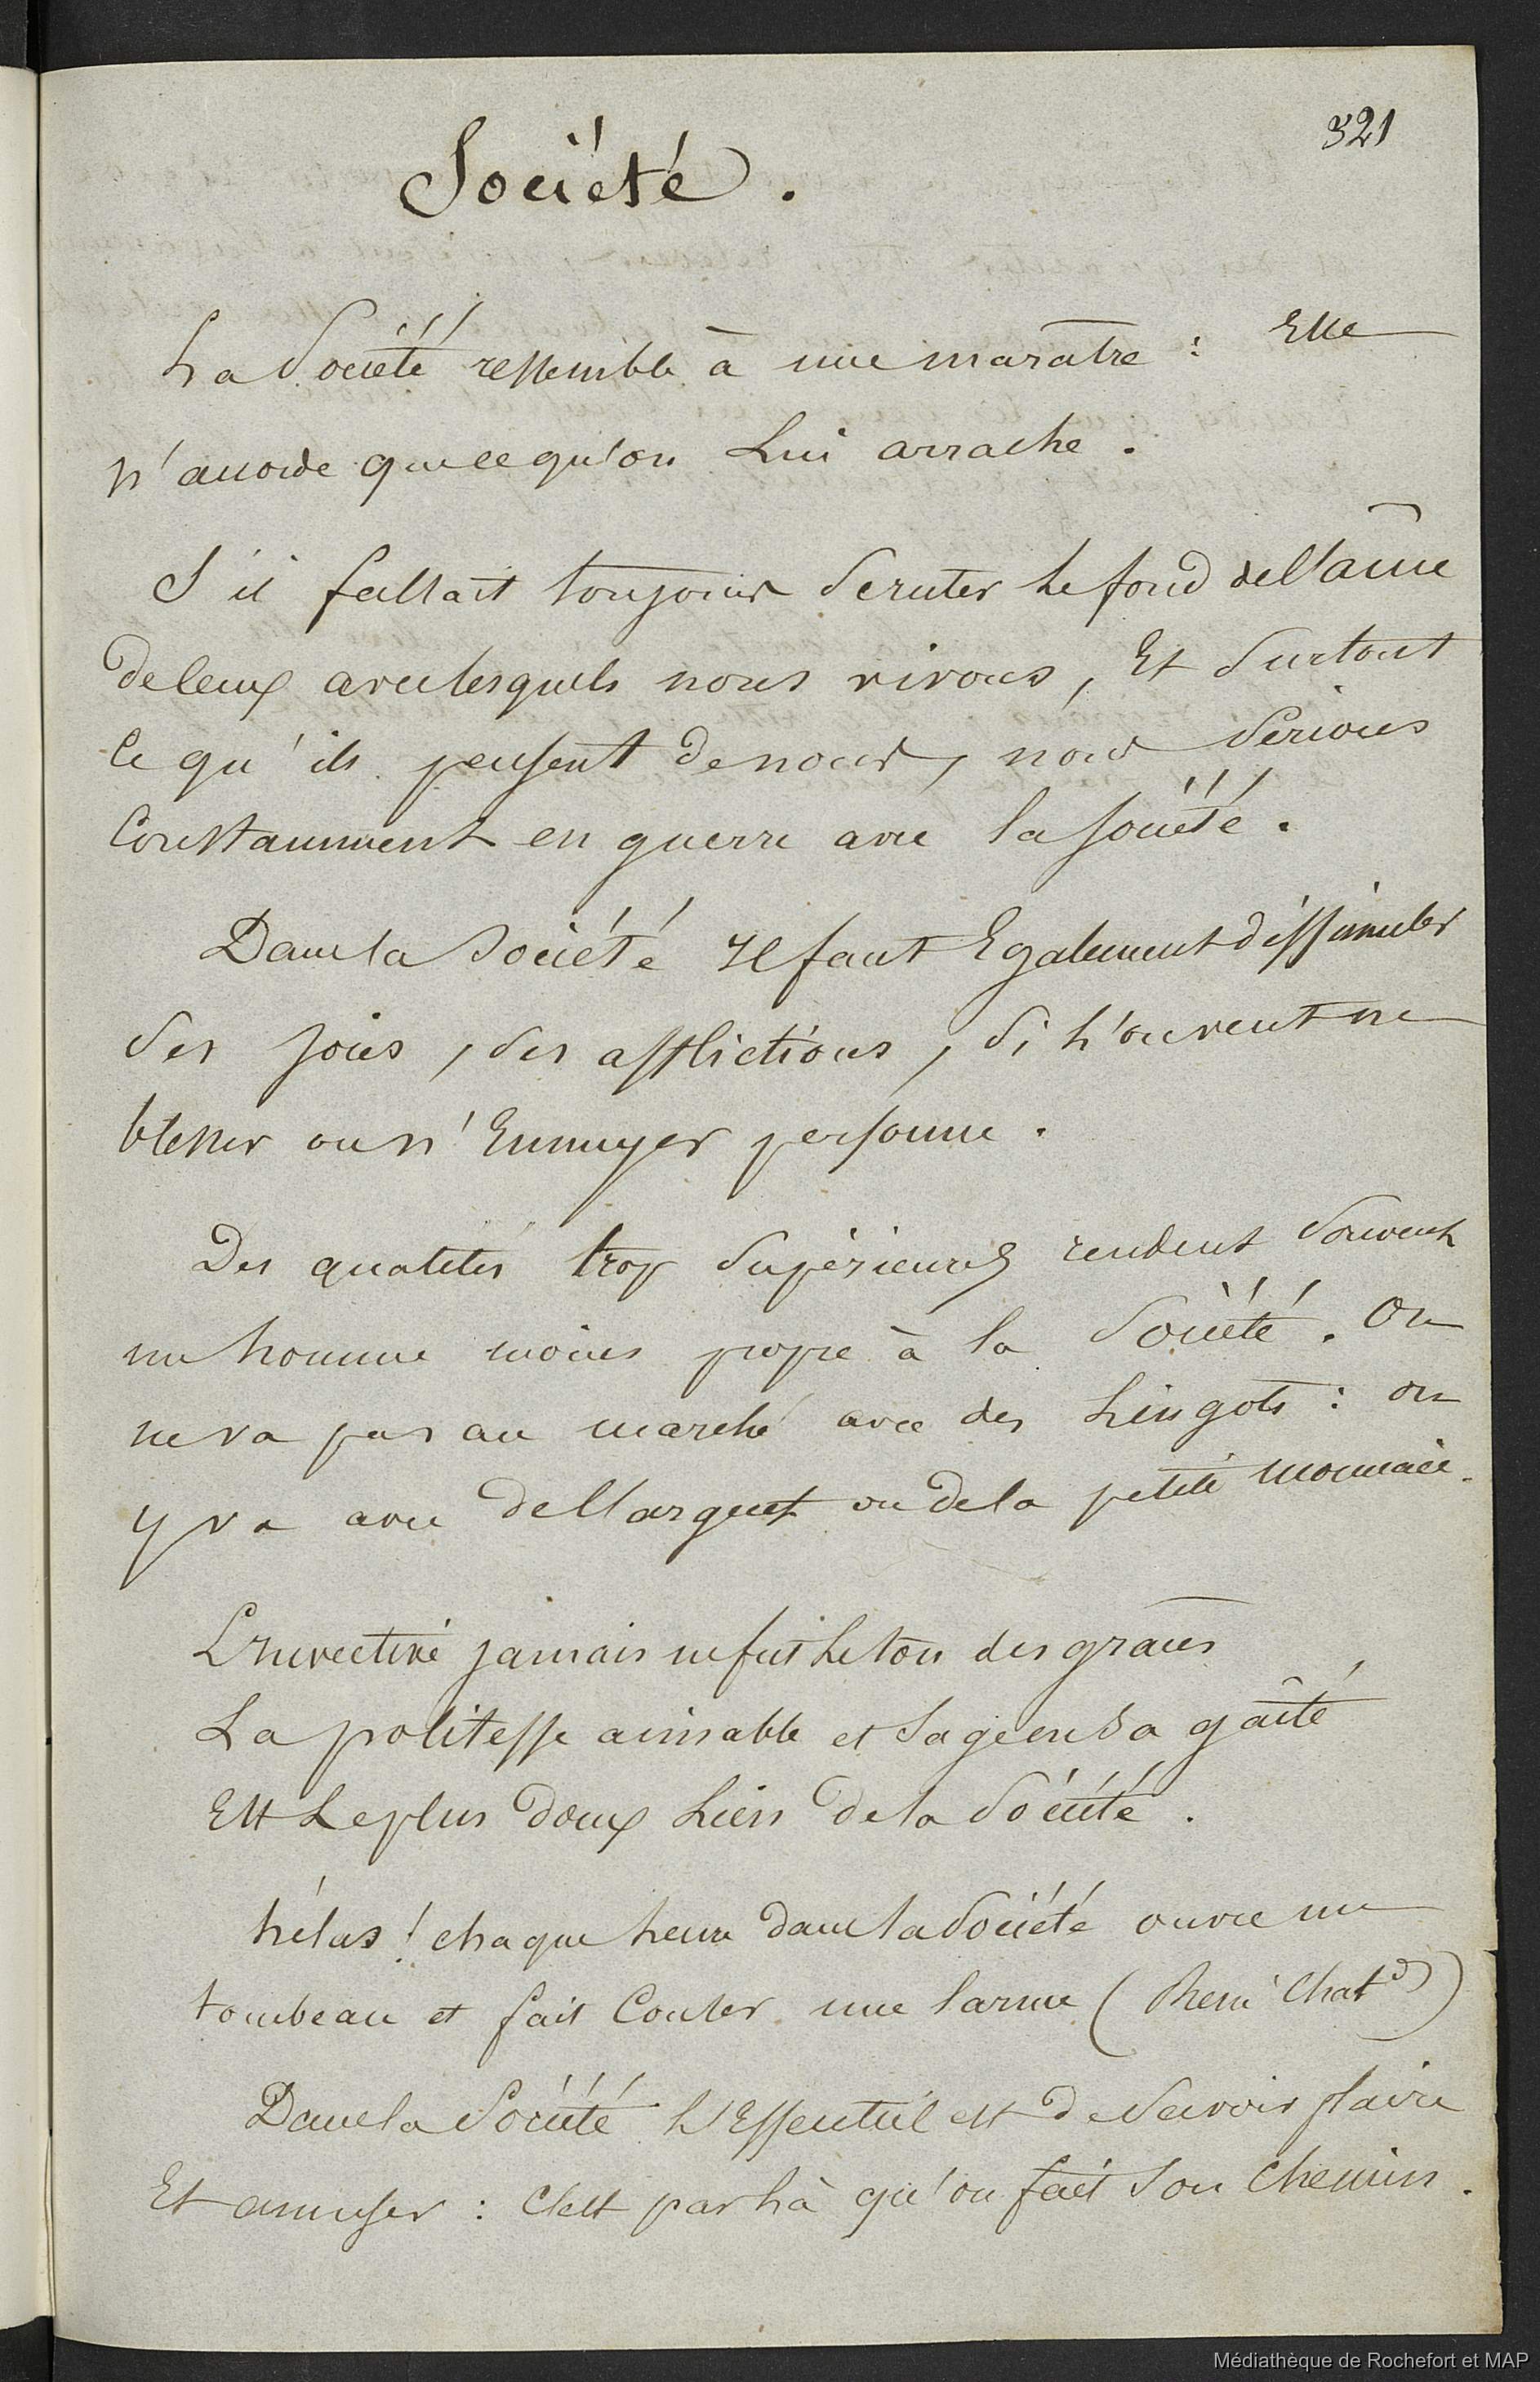 321
Société.
La Société ressemble à une marâtre : Elle
n'accorde que ce qu'on Lui arrache.
S'il fallait toujours Scruter le fond de l'âme
de ceux avec lesquels nous vivons, Et Surtout
Ce qu'ils pensent de nous, nous Serions
Constamment en guerre avec la société.
Dans la Société Il faut Egalement dissimuler
Ses joies, Ses afflictions, Si l'on veut ne
blesser ou n'Ennuyer personne.
Des qualités trop Supérieures rendent Souvent
un homme moins propre à la Société. On
ne va pas au marché avec des Lingots : on
y va avec de l'argent ou de la petite monnaie.
L'invective jamais ne fut le ton des grâces
La politesse aimable et Sage en Sa gaîté
Est Le plus doux Lien de la Société.
hélas ! chaque heure dans la Société ouvre un
tombeau et fait Couler une larme (René Chatd)
Dans la Société L'Essentiel est de Savoir plaire
Et amuser : C'est par là qu'on fait Son Chemin.
Médiathèque de Rochefort et MAP